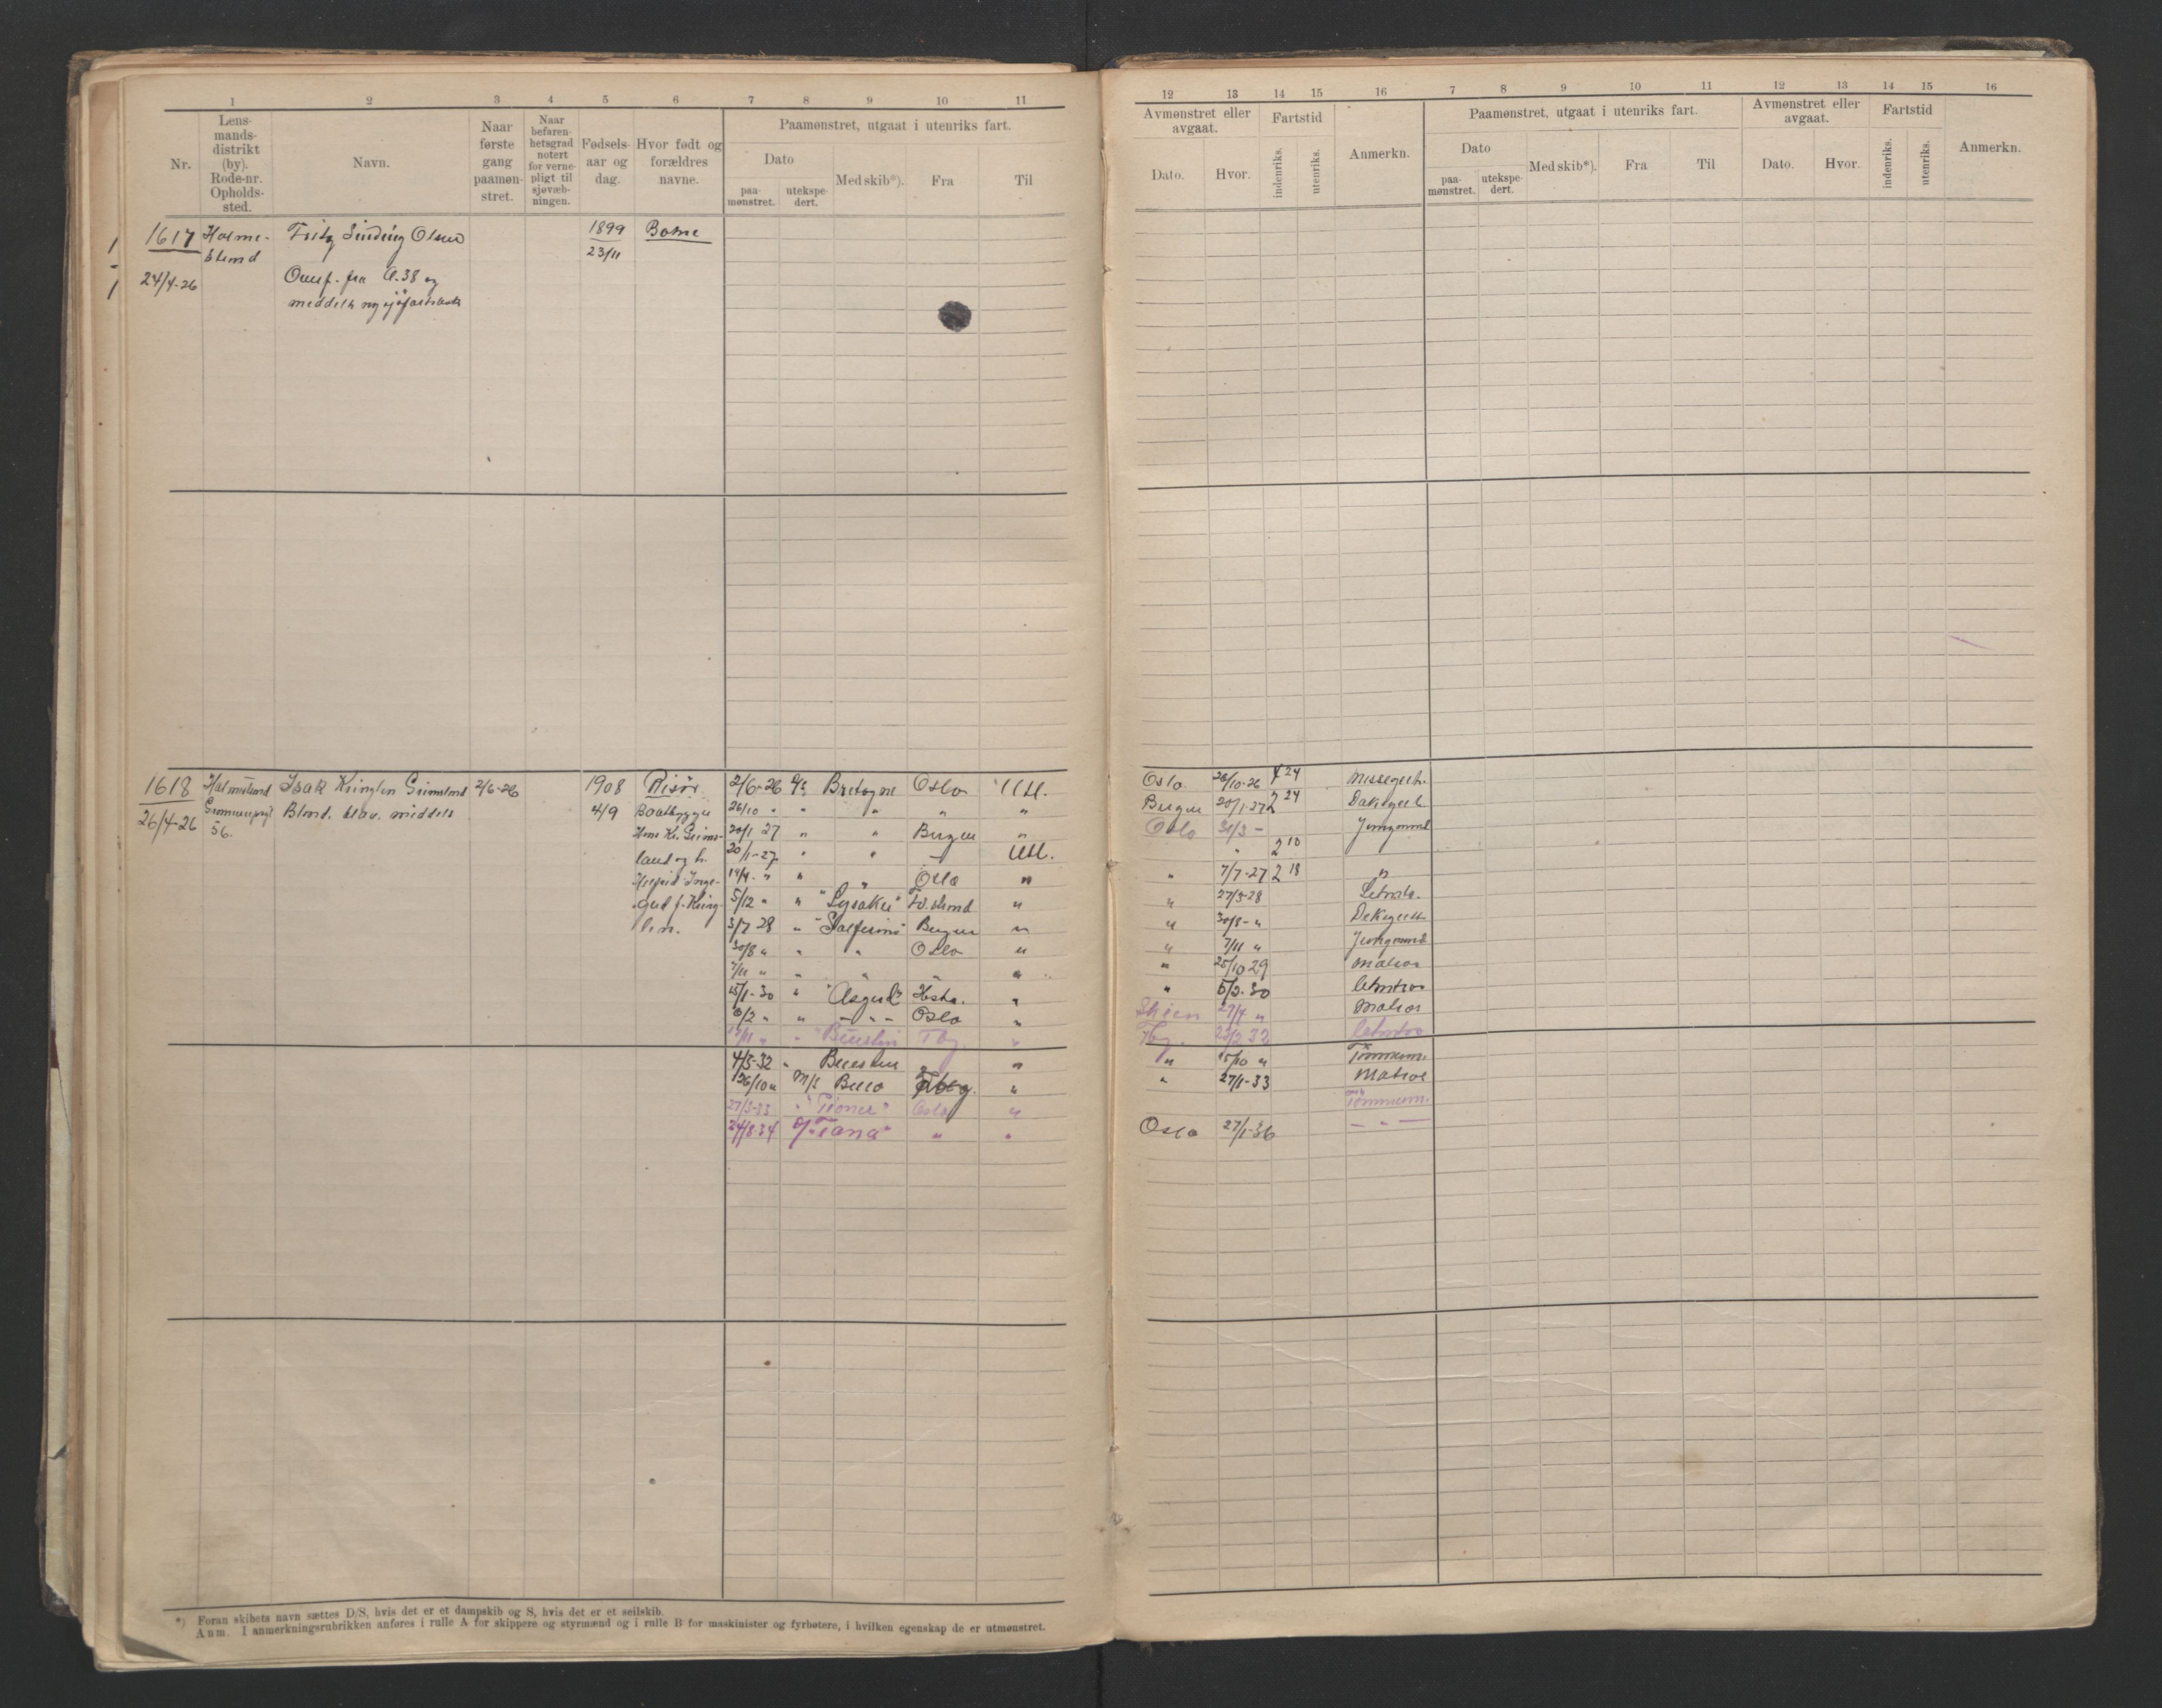 1 2 3 4 5 6 7 8 9 10 11
Nr.
Lens-
mands-
distrikt
(by).
Rode-nr.
Opholds-
sted.
Navn.
Naar
første
gang
paamøn-
stret.
Naar
befaren-
hetsgrad
notert
for verne-
pligt til
sjøvæb-
ningen.
Fødsels-
aar og
dag.
Hvor født og
forældres
navne.
Paamønstret, utgaat i utenriks fart.
Dato
paa-
mønstret.
utekspe-
dert.
Med skib*).
Fra
Til
1617 Holme- Olsen 1899 Botne
strand 23/11
24/4-26 Overf. fra A.38 og
meddelt ny
1618 Holmestrand Isak Kringlen Grimsland 2/6-26 1908 Risør 2/6-26 Bretagne Oslo Utl.
26/4-26 56. Blond. blav. middels 4/9 Baatbygger 26/10 " " " " "
Hans Kr. Grims- 20/1 27 " " Bergen "
land og h. 20/1-27 " " — Utl.
14/4- " " " Oslo "
5/12 " " "Lysaker" "
3/7 28 " Bergen "
30/8 " " " Oslo "
7/11 " " " " "
15/1-30 " "Asgerd" "
6/2 " " - " - Oslo "
" " Tbg. "
4/3-32 " "
26/10 " M/S Tbg. "
27/3-33 " "Pioner" Oslo "
24/8-34 "Tana" " "
*) Foran skibets navn sættes D/S, hvis det er et dampskib og S, hvis det er et seilskib.
Anm. I anmerkningsrubrikken anføres i rulle A for skippere og styrmænd og i rulle B for maskinister og fyrbøtere, i hvilken egenskap de er utmønstret.
12 13 14 15 16 7 8 9 10 11 12 13 14 15 16
Avmønstret eller
avgaat.
Dato.
Hvor.
Fartstid
indenriks.
utenriks.
Anmerkn.
Paamønstret, utgaat i utenriks fart.
Dato
paa-
mønstret.
utekspe-
dert.
Med skib*).
Fra
Til
Avmønstret eller
avgaat.
Dato.
Hvor.
Fartstid
indenriks.
utenriks.
Anmerkn.
Oslo 26/10-26 4 24 Messegut
Bergen 20/1-27 2 24 Dæksgut
Oslo 31/3 - Jungmand
" 2 10
" 7/7-27 2 18 "
" 27/3-28 Letmatr.
" 30/8- " Dæksgut
" 7/11 " Jungmand
" 25/10 29 Matros
" 5/2-30 Letmatros
Skien 27/4 " Matros
Tbg. 32 Letmatros
" 15/10 " Tømmerm.
" 27/1-33 Matros
Tømmerm.
Oslo 27/1-36 - " -